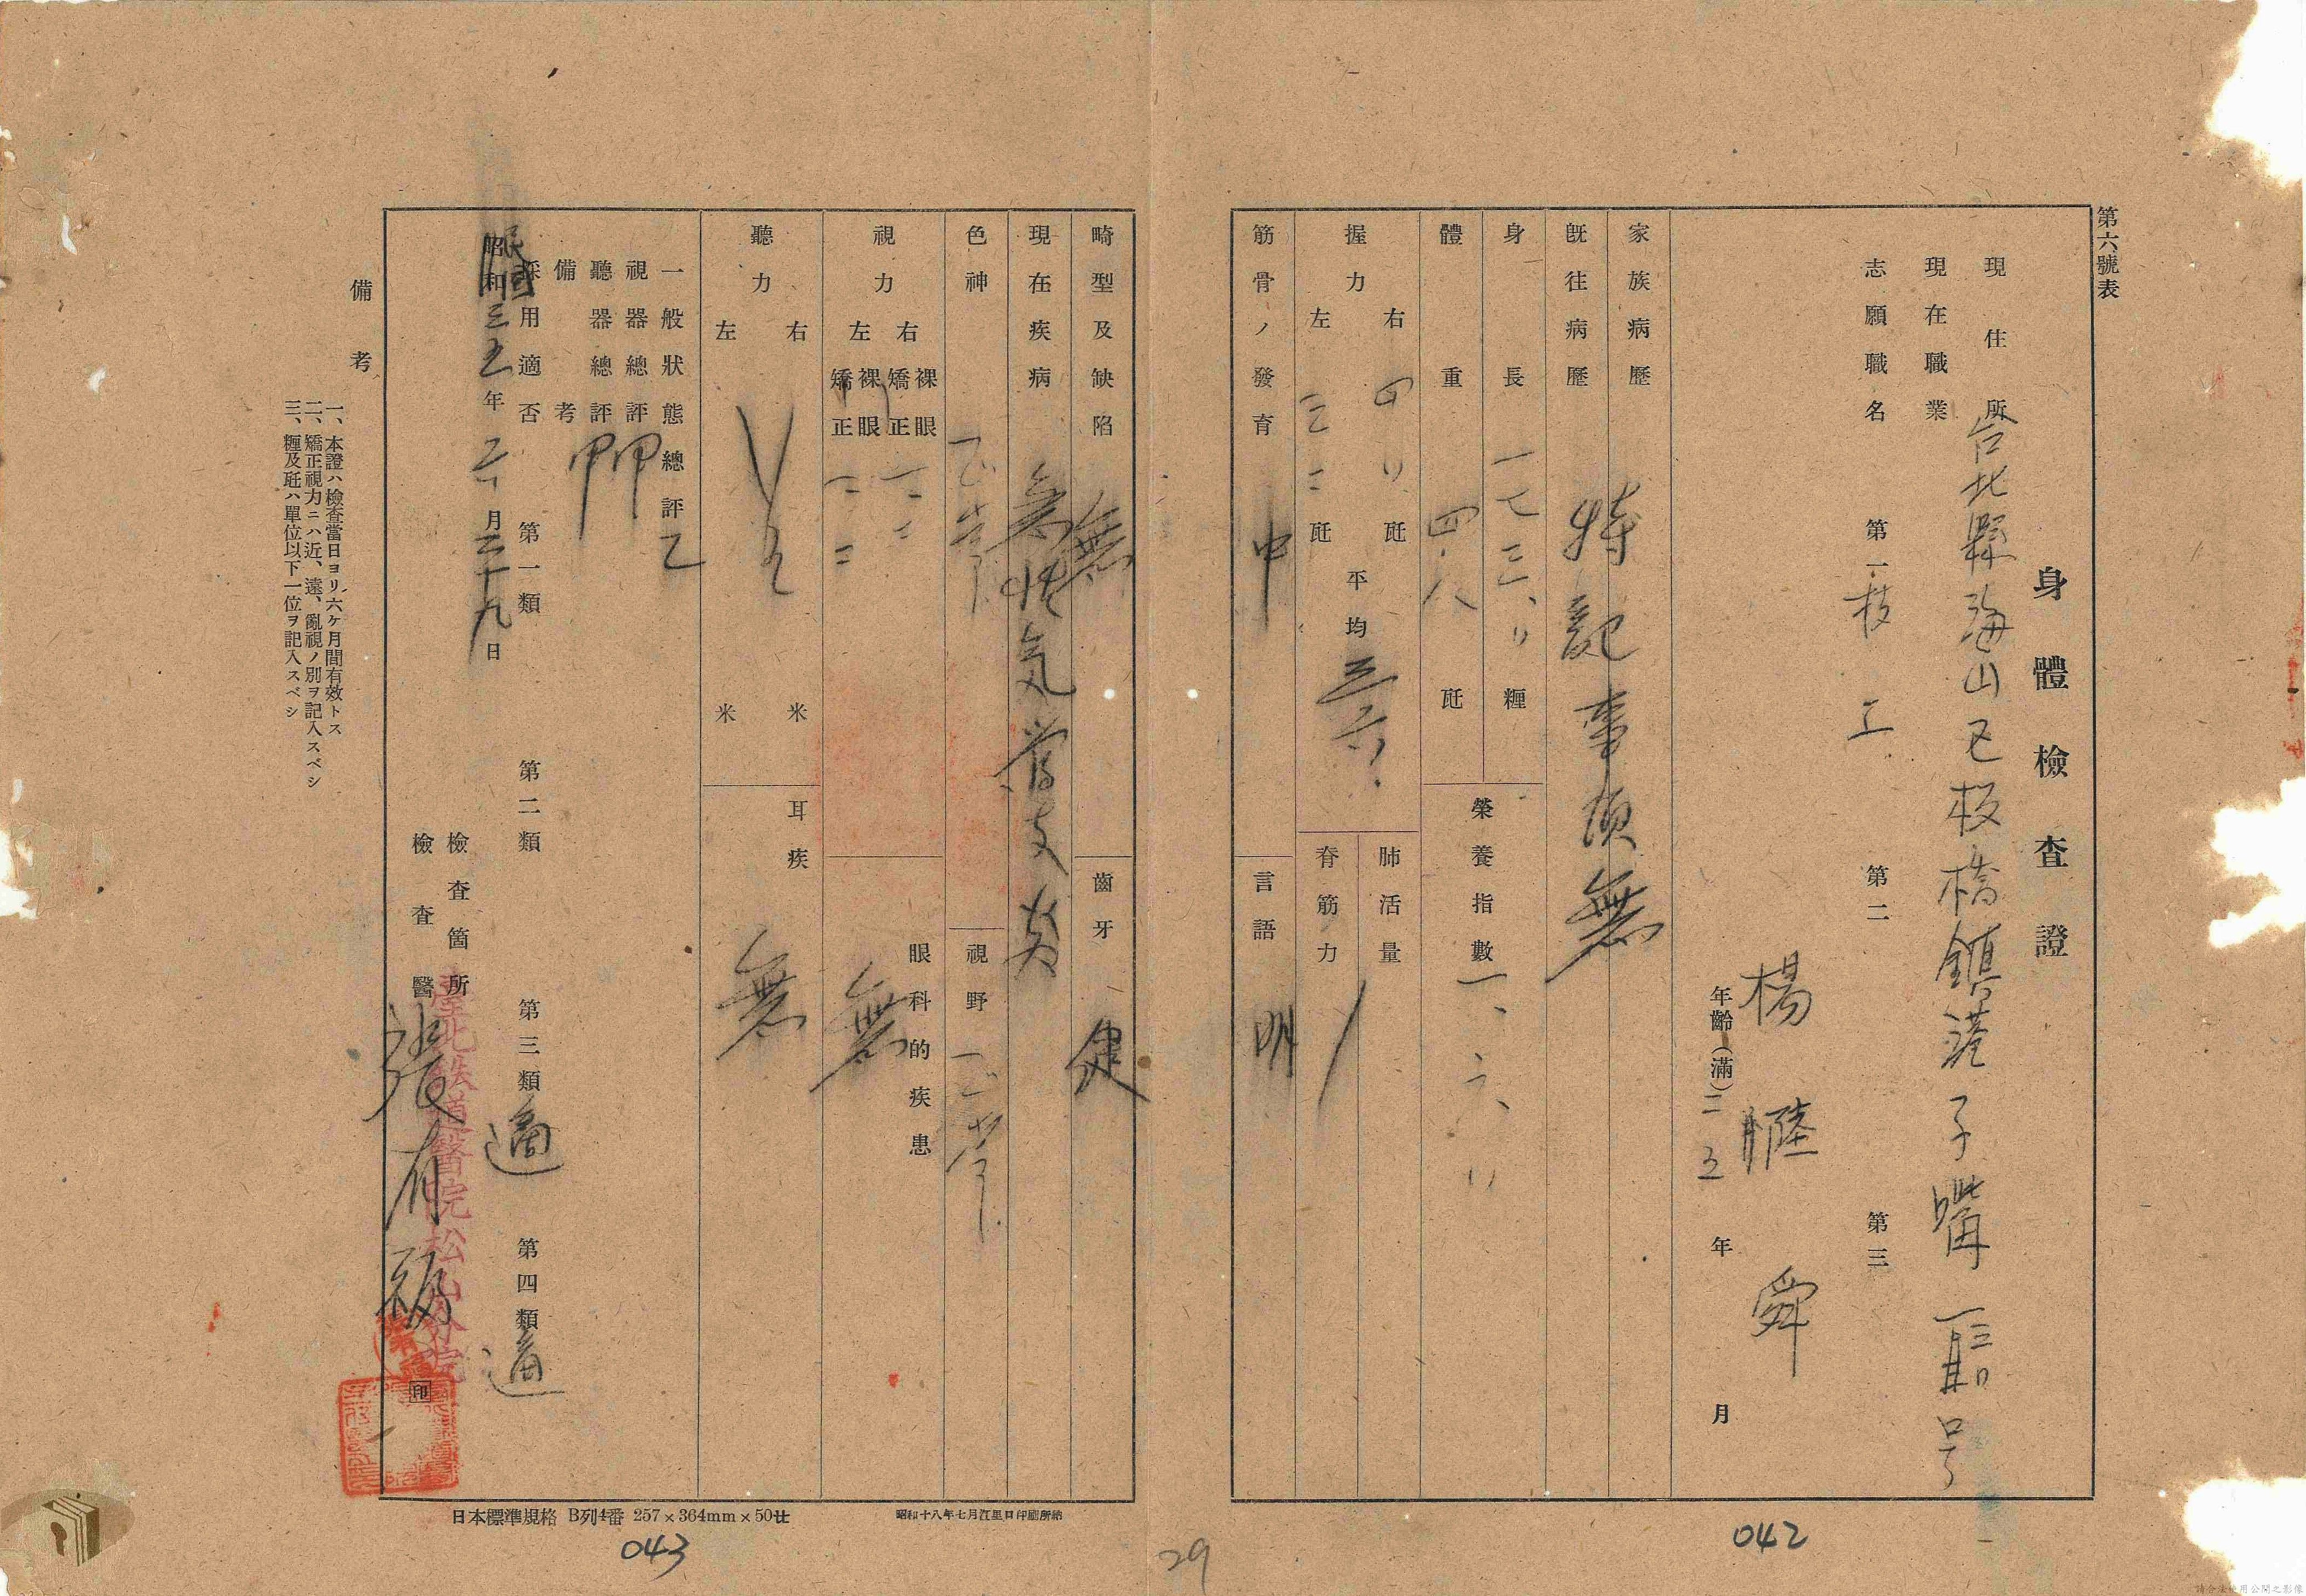 第六號表
身體檢査證
現住所 台北縣海山区板橋鎮港子嘴
現在職業
志願職名 第一 技工 第二 第三
楊 舜
年齡(滿)二五年 月
家族病歷
既往病歷 特記事項無
身長 一七三、〃 糎
體重 四八 瓩
榮養指數 一、六、〃
握力 右 四〃 瓩 左 三二 瓩 平均 三六
肺活量
脊筋力
筋骨ノ發育 中
言語 明
畸型及缺陷 無
齒牙 健
現在疾病 気管支炎
色神 正常
視野 正常
視力 右 裸眼 矯正 左 裸眼 矯正
眼科的疾患 無
聽力 右 米 左 米
耳疾 無
一般狀態總評 乙
視器總評 甲
聽器總評 甲
備考
採用適否 第一類 第二類 第三類 適 第四類 適
昭和 民國 三五年 二月二十九日
檢査箇所 臺北鉄道醫院松山分院
檢査醫 張有福 印
備考
一、本證ハ檢査當日ヨリ六ケ月間有效トス
二、矯正視力ニハ近、遠、亂視ノ別ヲ記入スベシ
三、糎及瓩ハ單位以下一位ヲ記入スベシ
日本標準規格 B列4番 257×364mm×50廿
042
29
043